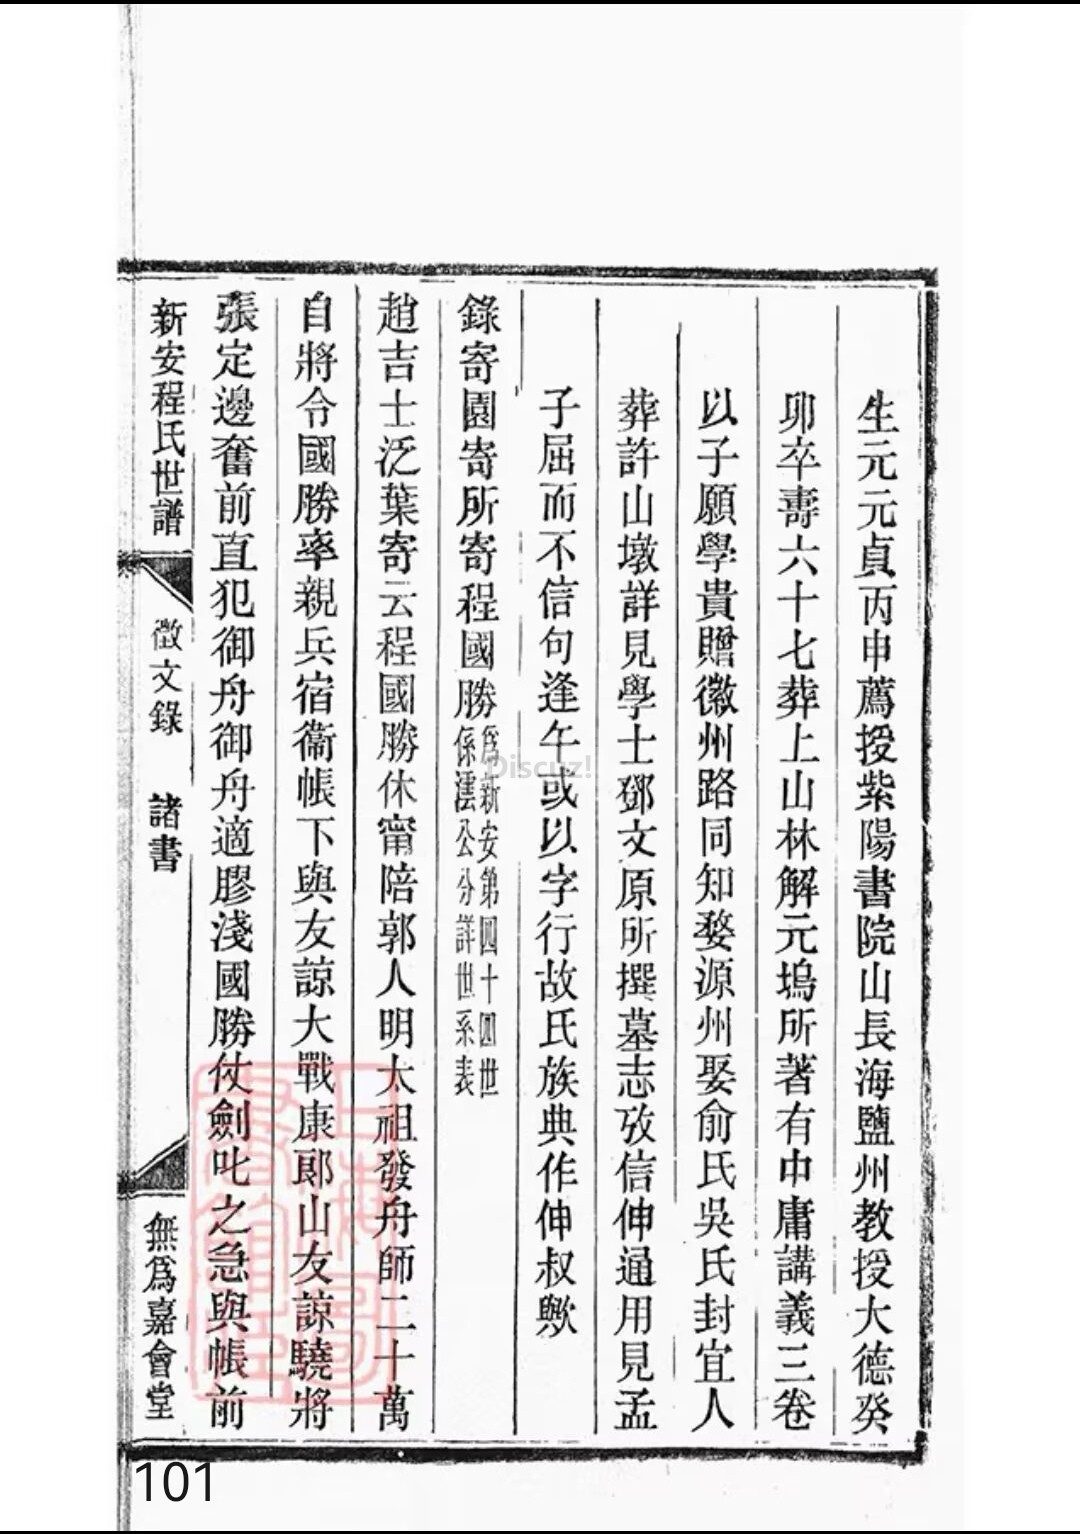 生元元貞丙申薦授紫陽書院山長海鹽州教授大德癸
卯卒壽六十七葬上山林解元塢所著有中庸講義三卷
以子願學貴贈徽州路同知婺源州娶俞氏吳氏封宜人
葬許山墩詳見學士鄧文原所撰墓志攷信伸通用見孟
子屈而不信句逢午或以字行故氏族典作伸叔歟
錄寄園寄所寄程國勝
為新安第四十四世
係澐公分詳世系表
趙吉士泛葉寄云程國勝休甯陪郭人明太祖發舟師二十萬
自將令國勝率親兵宿衞帳下與友諒大戰康郎山友諒驍將
張定邊奮前直犯御舟御舟適膠淺國勝仗劍叱之急與帳前
新安程氏世譜
徵文錄
諸書
無為嘉會堂
101
Discuz!